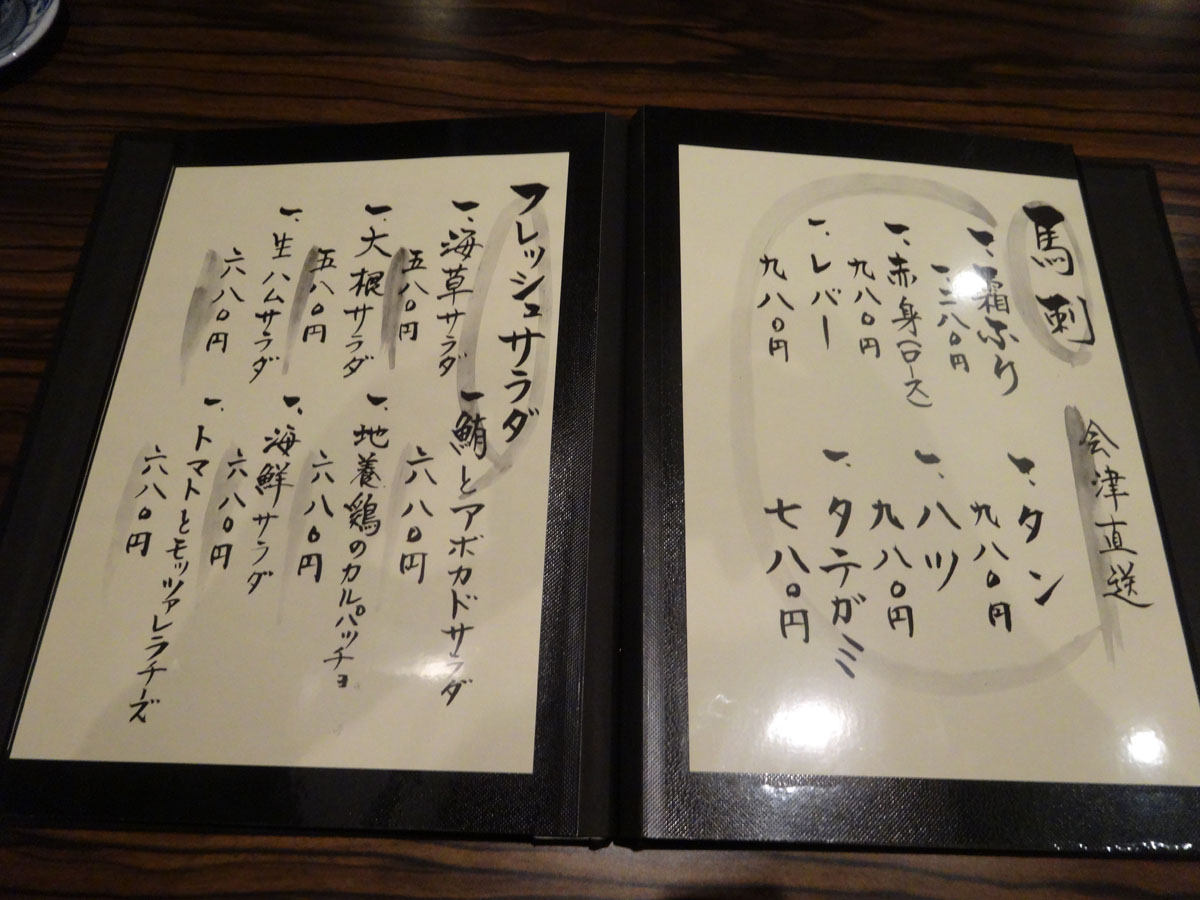 馬刺
会津直送
一、霜ふり
一二八〇円
一、赤身(ロース)
九八〇円
一、レバー
九八〇円
一、タン
九八〇円
一、ハツ
九八〇円
一、タテガミ
七八〇円
フレッシュサラダ
一、海草サラダ
五八〇円
一、大根サラダ
五八〇円
一、生ハムサラダ
六八〇円
一、鮪とアボカドサラダ
六八〇円
一、地養鶏のカルパッチョ
六八〇円
一、海鮮サラダ
六八〇円
一、トマトとモッツァレラチーズ
六八〇円